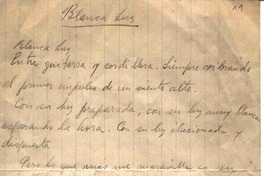 Blanca Luz
19
Blanca Luz
Entre guitarra y cordillera. Siempre vibrando
al primer impulso de un viento alto.
Con su luz preparada, con su luz muy blanca
esperando la hora. Con su luz ilusionada y
dispuesta.
Pero lo que más me maravilla es